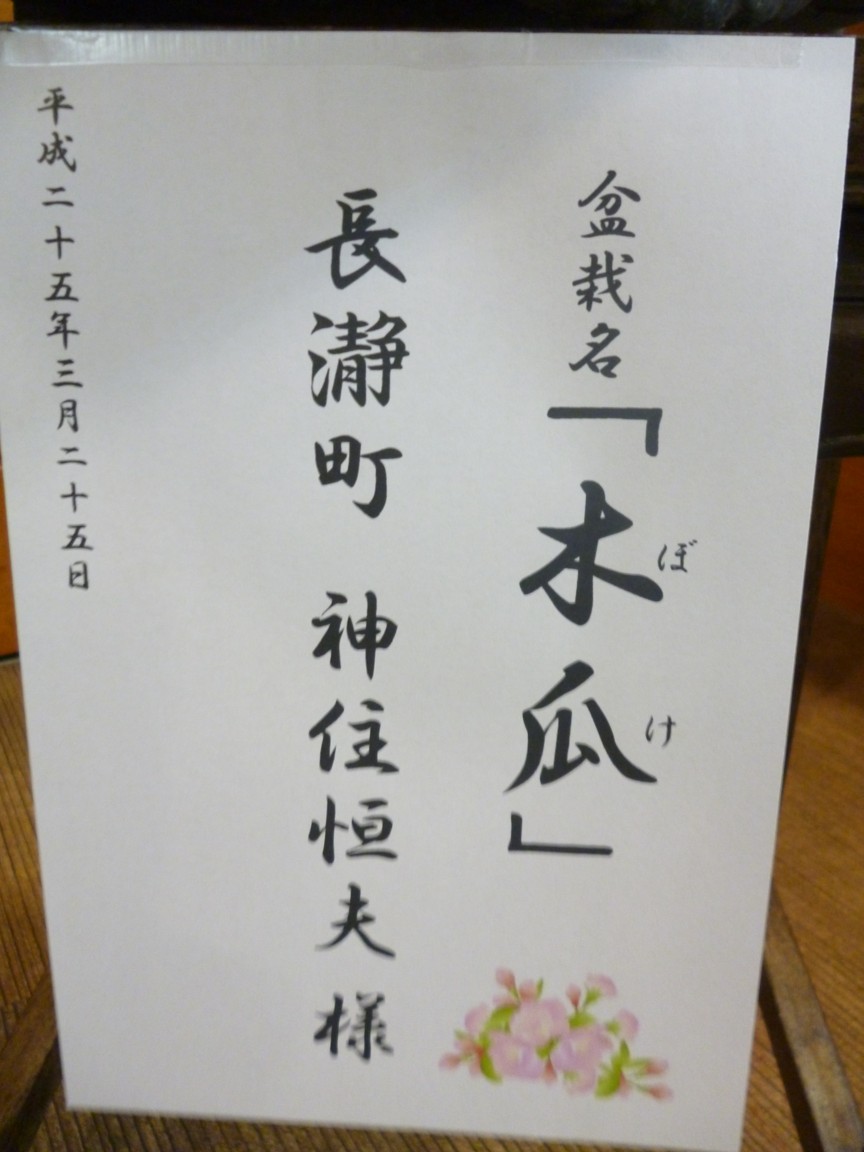 盆栽名「木瓜」
ぼけ
長瀞町 神住恒夫 様
平成二十五年三月二十五日